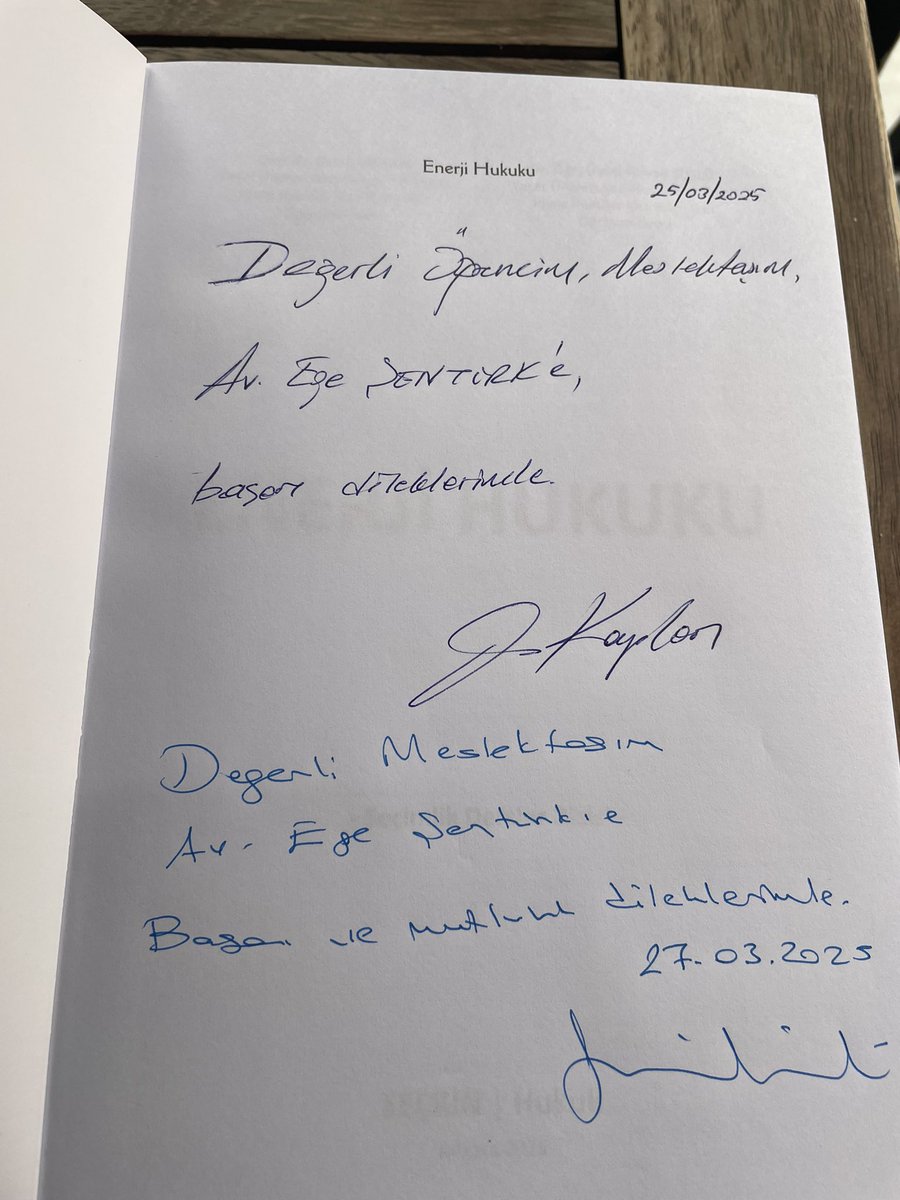 Enerji Hukuku
25/03/2025
Değerli Öğrencim, Meslektaşım,
Av. Ege ŞENTÜRK'e,
başarı dileklerimle.
Kaplan
Değerli Meslektaşım
Av. Ege Şentürk'e
Başarı ve mutluluk dileklerimle.
27.03.2025
ENERJİ HUKUKU
SEÇKİN | Hukuk